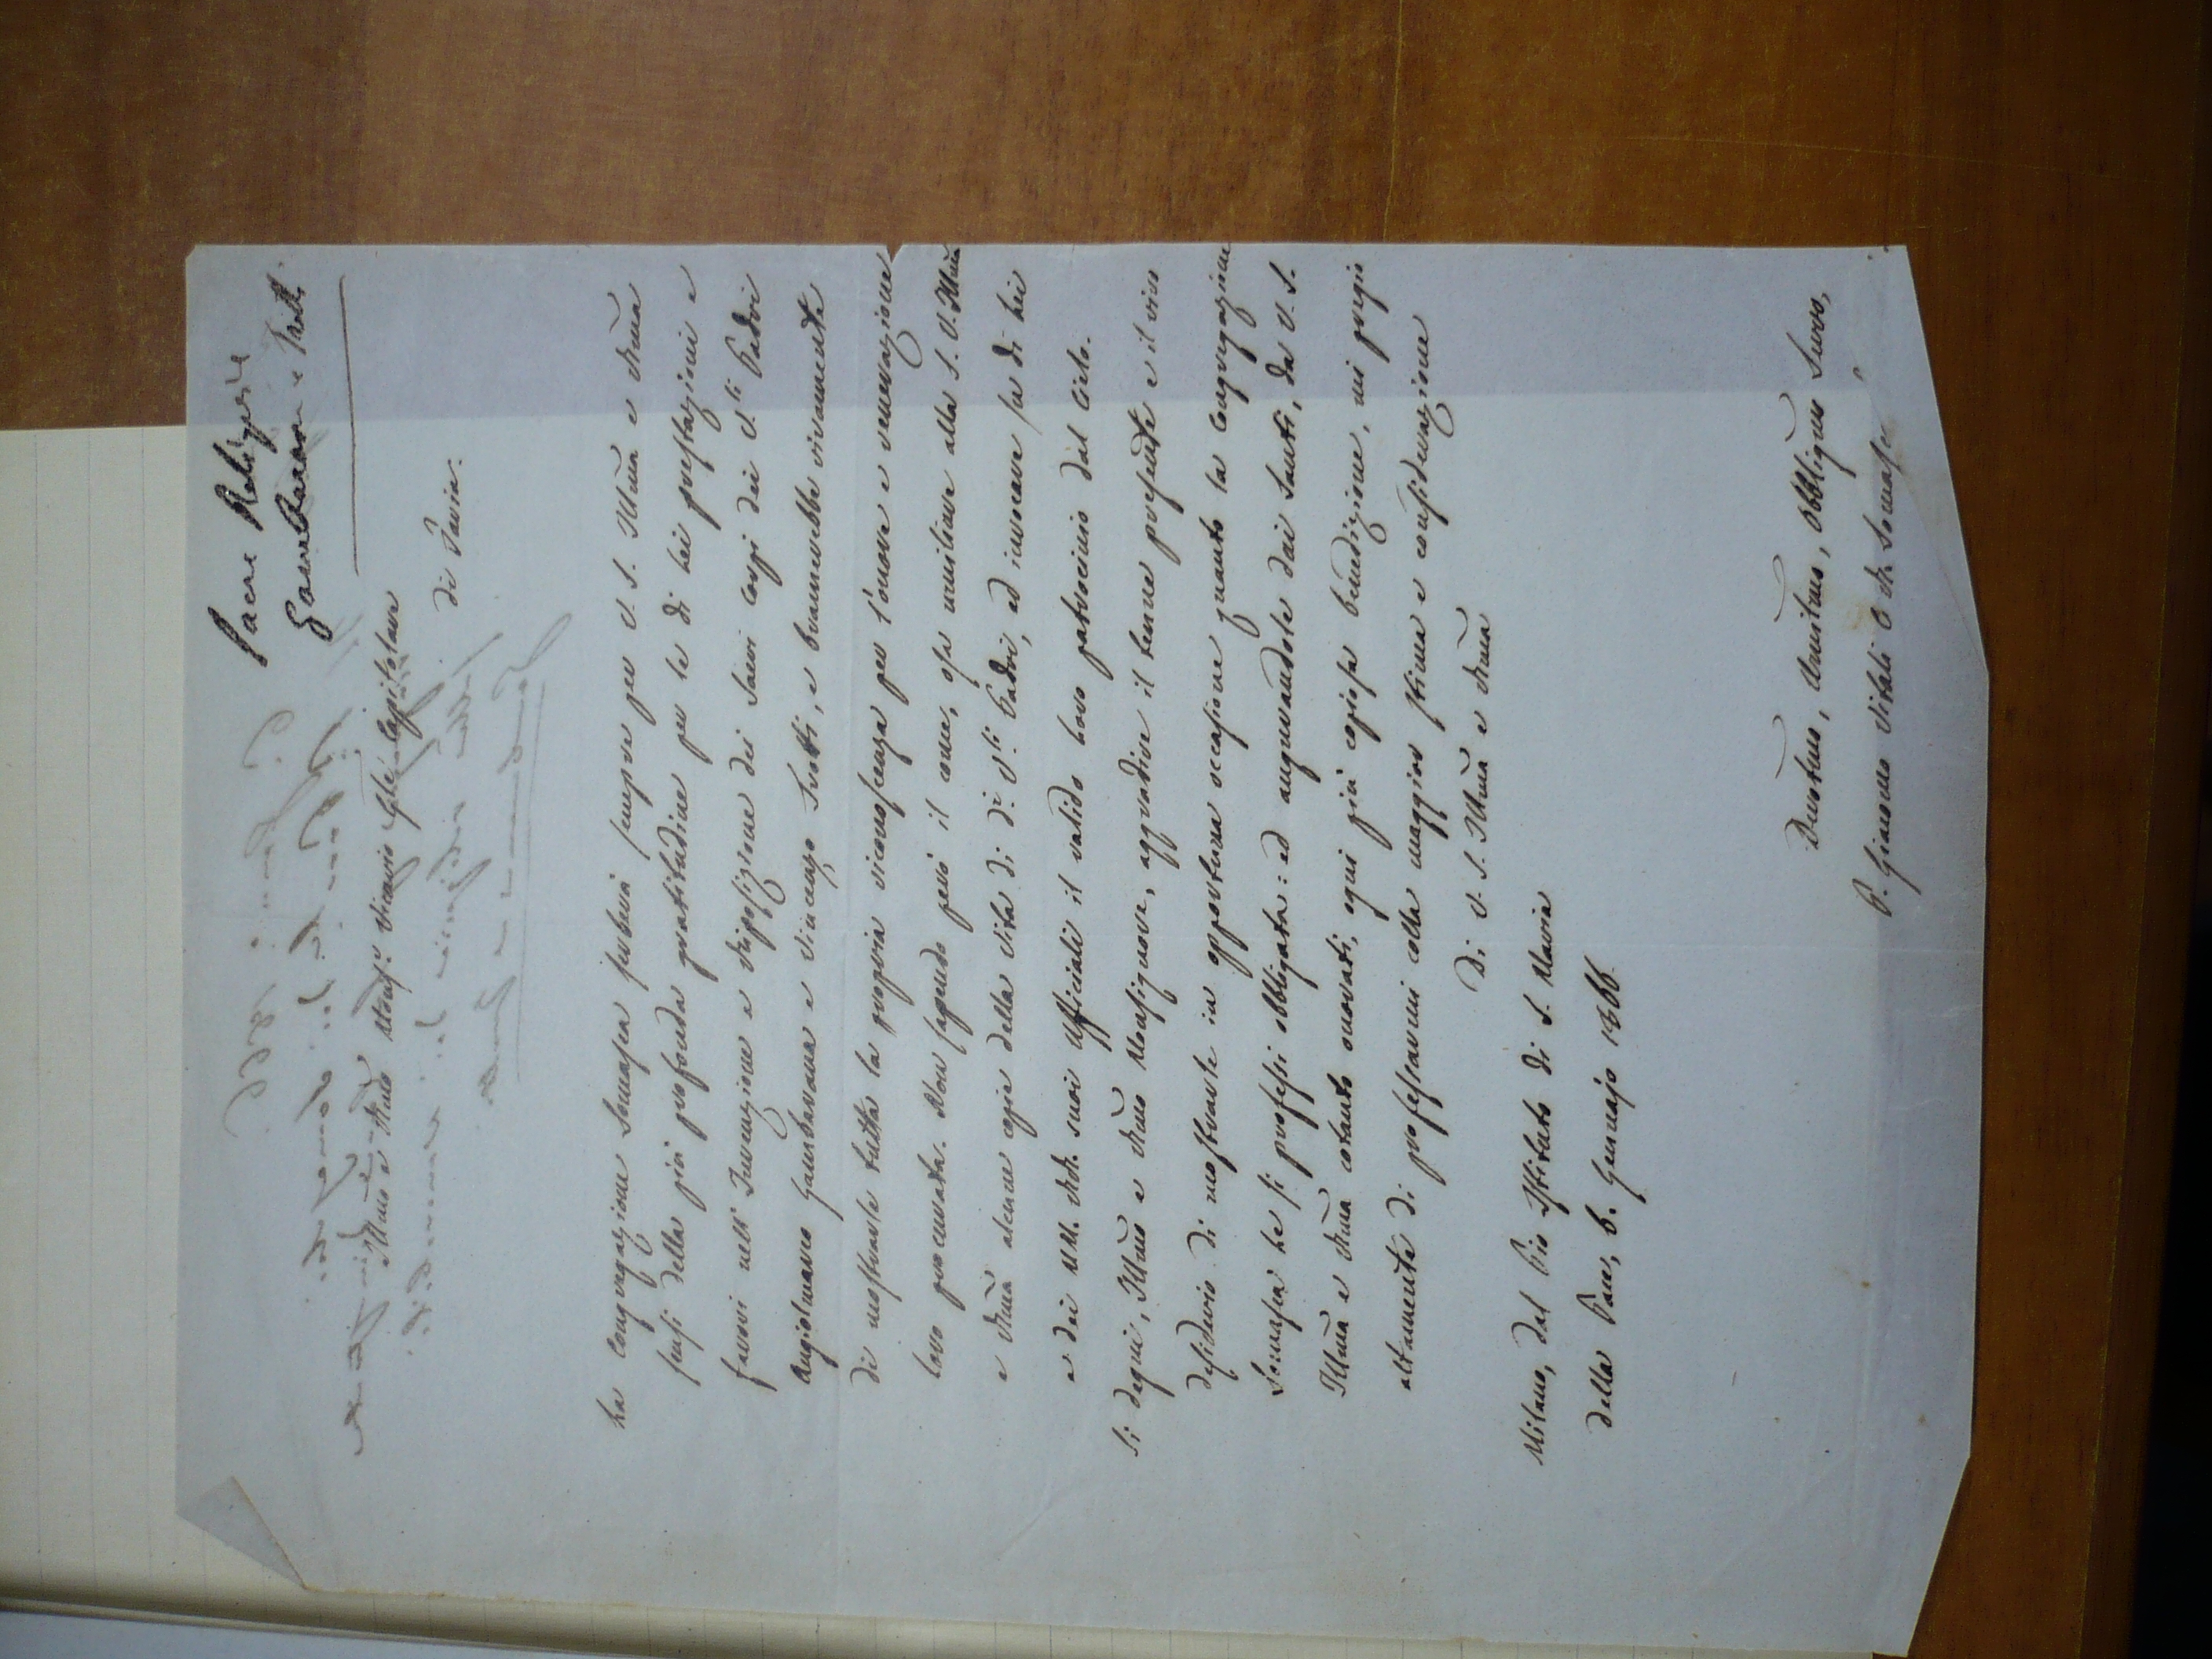 Sacre Reliquie
Gambarana e Trott.
Illmo e Rmo Monsr. Vicario Gle. Capitolare
di Pavia.
La Congregazione Somasca serberà sempre per V. S. Illma e Rma
sensi della più profonda gratitudine per le di Lei prestazioni e
favori nell'Invenzione e disposizione dei Sacri Corpi dei Vli Padri
Angiolmarco Gambarana e Vincenzo Trotti, e bramerebbe vivamente
di mostrarle tutta la propria riconoscenza per l'onore e venerazione
loro procurata. Non sapendo però il come, osa umiliare alla S. V. Illma
e Rma alcune copie della Vita di di. Vli. Padri, ed invocare su di Lei
e dei MM. RR. suoi Ufficiali il valido loro patrocinio dal Cielo.
Si degni, Illmo e Rmo Monsignore, aggradire il tenue presente e il vivo
desiderio di mostrarle in opportuna occasione quanto la Congregazione
Somasca Le si professi obbligata: ed augurandole dai Santi, da V. S.
Illma e Rma cotanto onorati, ogni più copiosa benedizione, mi pregio
altamente di professarmi colla maggior stima e considerazione
Di V. S. Illma e Rma
Milano, dal Pio Istituto di S. Maria
della Pace, 6. Gennajo 1866.
Devotmo, Umilmo, Obbligmo Servo,
P. Giacomo Vitali C. R. Somasco